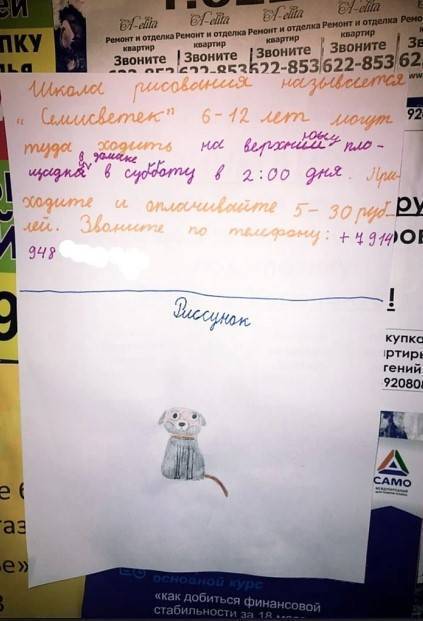 A-elita
A-elita
A-elita
A-elita
Ремонт и отделка квартир
Ремонт и отделка квартир
Ремонт и отделка квартир
Ремонт и отделка квартир
Звоните
Звоните
Звоните
Звоните
622-853
622-853
622-853
622-853
Школа рисования называется
"Семисветек" 6-12 лет могут
туда ходить на верхнюю пло-
щадка в домике в субботу в 2:00 дня. При-
ходите и оплачивайте 5-30 руб-
лей. Звоните по телефону: +7 914
948
Риссунок
САМО
основной курс
«как добиться финансовой
стабильности за 18